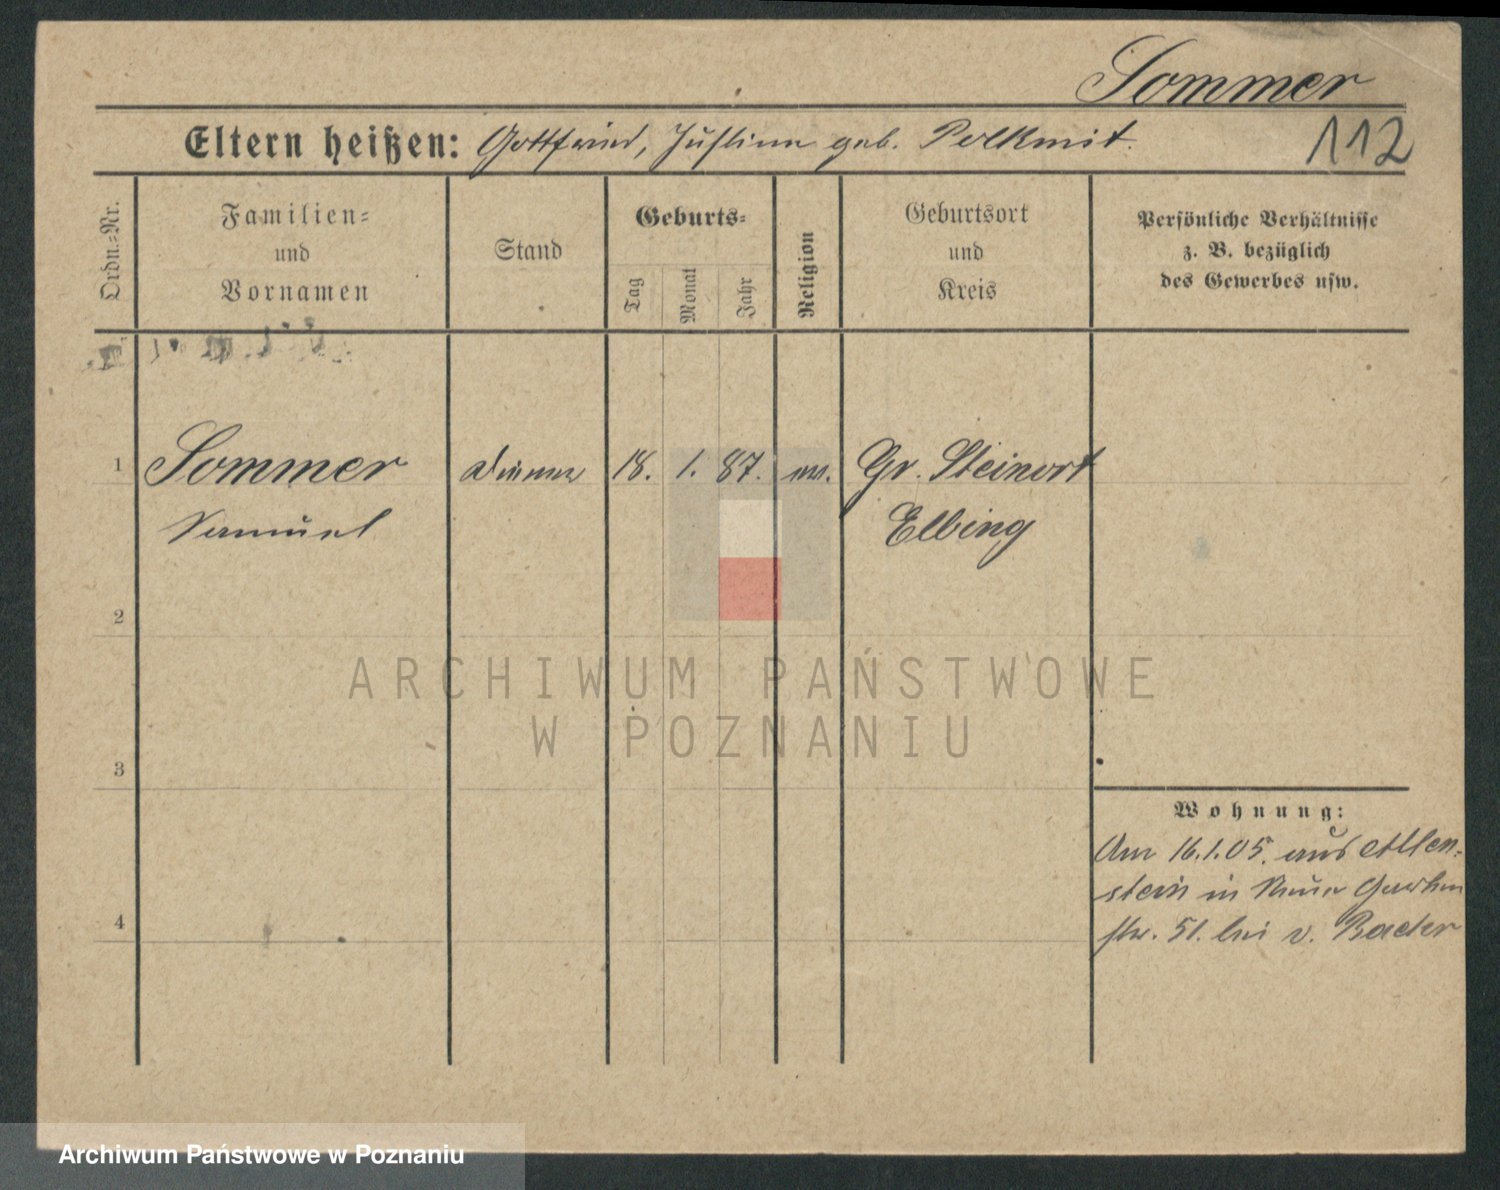 Sommer
Eltern heißen: Gottfried, Justine geb. Polkmit.
112
Ordn.=Nr.
Familien=
und
Vornamen
Stand
Geburts=
Tag
Monat
Jahr
Religion
Geburtsort
und
Kreis
Persönliche Verhältnisse
z. B. bezüglich
des Gewerbes usw.
1 Sommer Diener 18. 1. 87. ev. Gr. Steinort
Samuel Elbing
2
3
4
Wohnung:
Am 16.1.05. aus Allen-
stein in Neue Garten
str. 51. bei v. Bader
ARCHIWUM PAŃSTWOWE
W POZNANIU
Archiwum Państwowe w Poznaniu